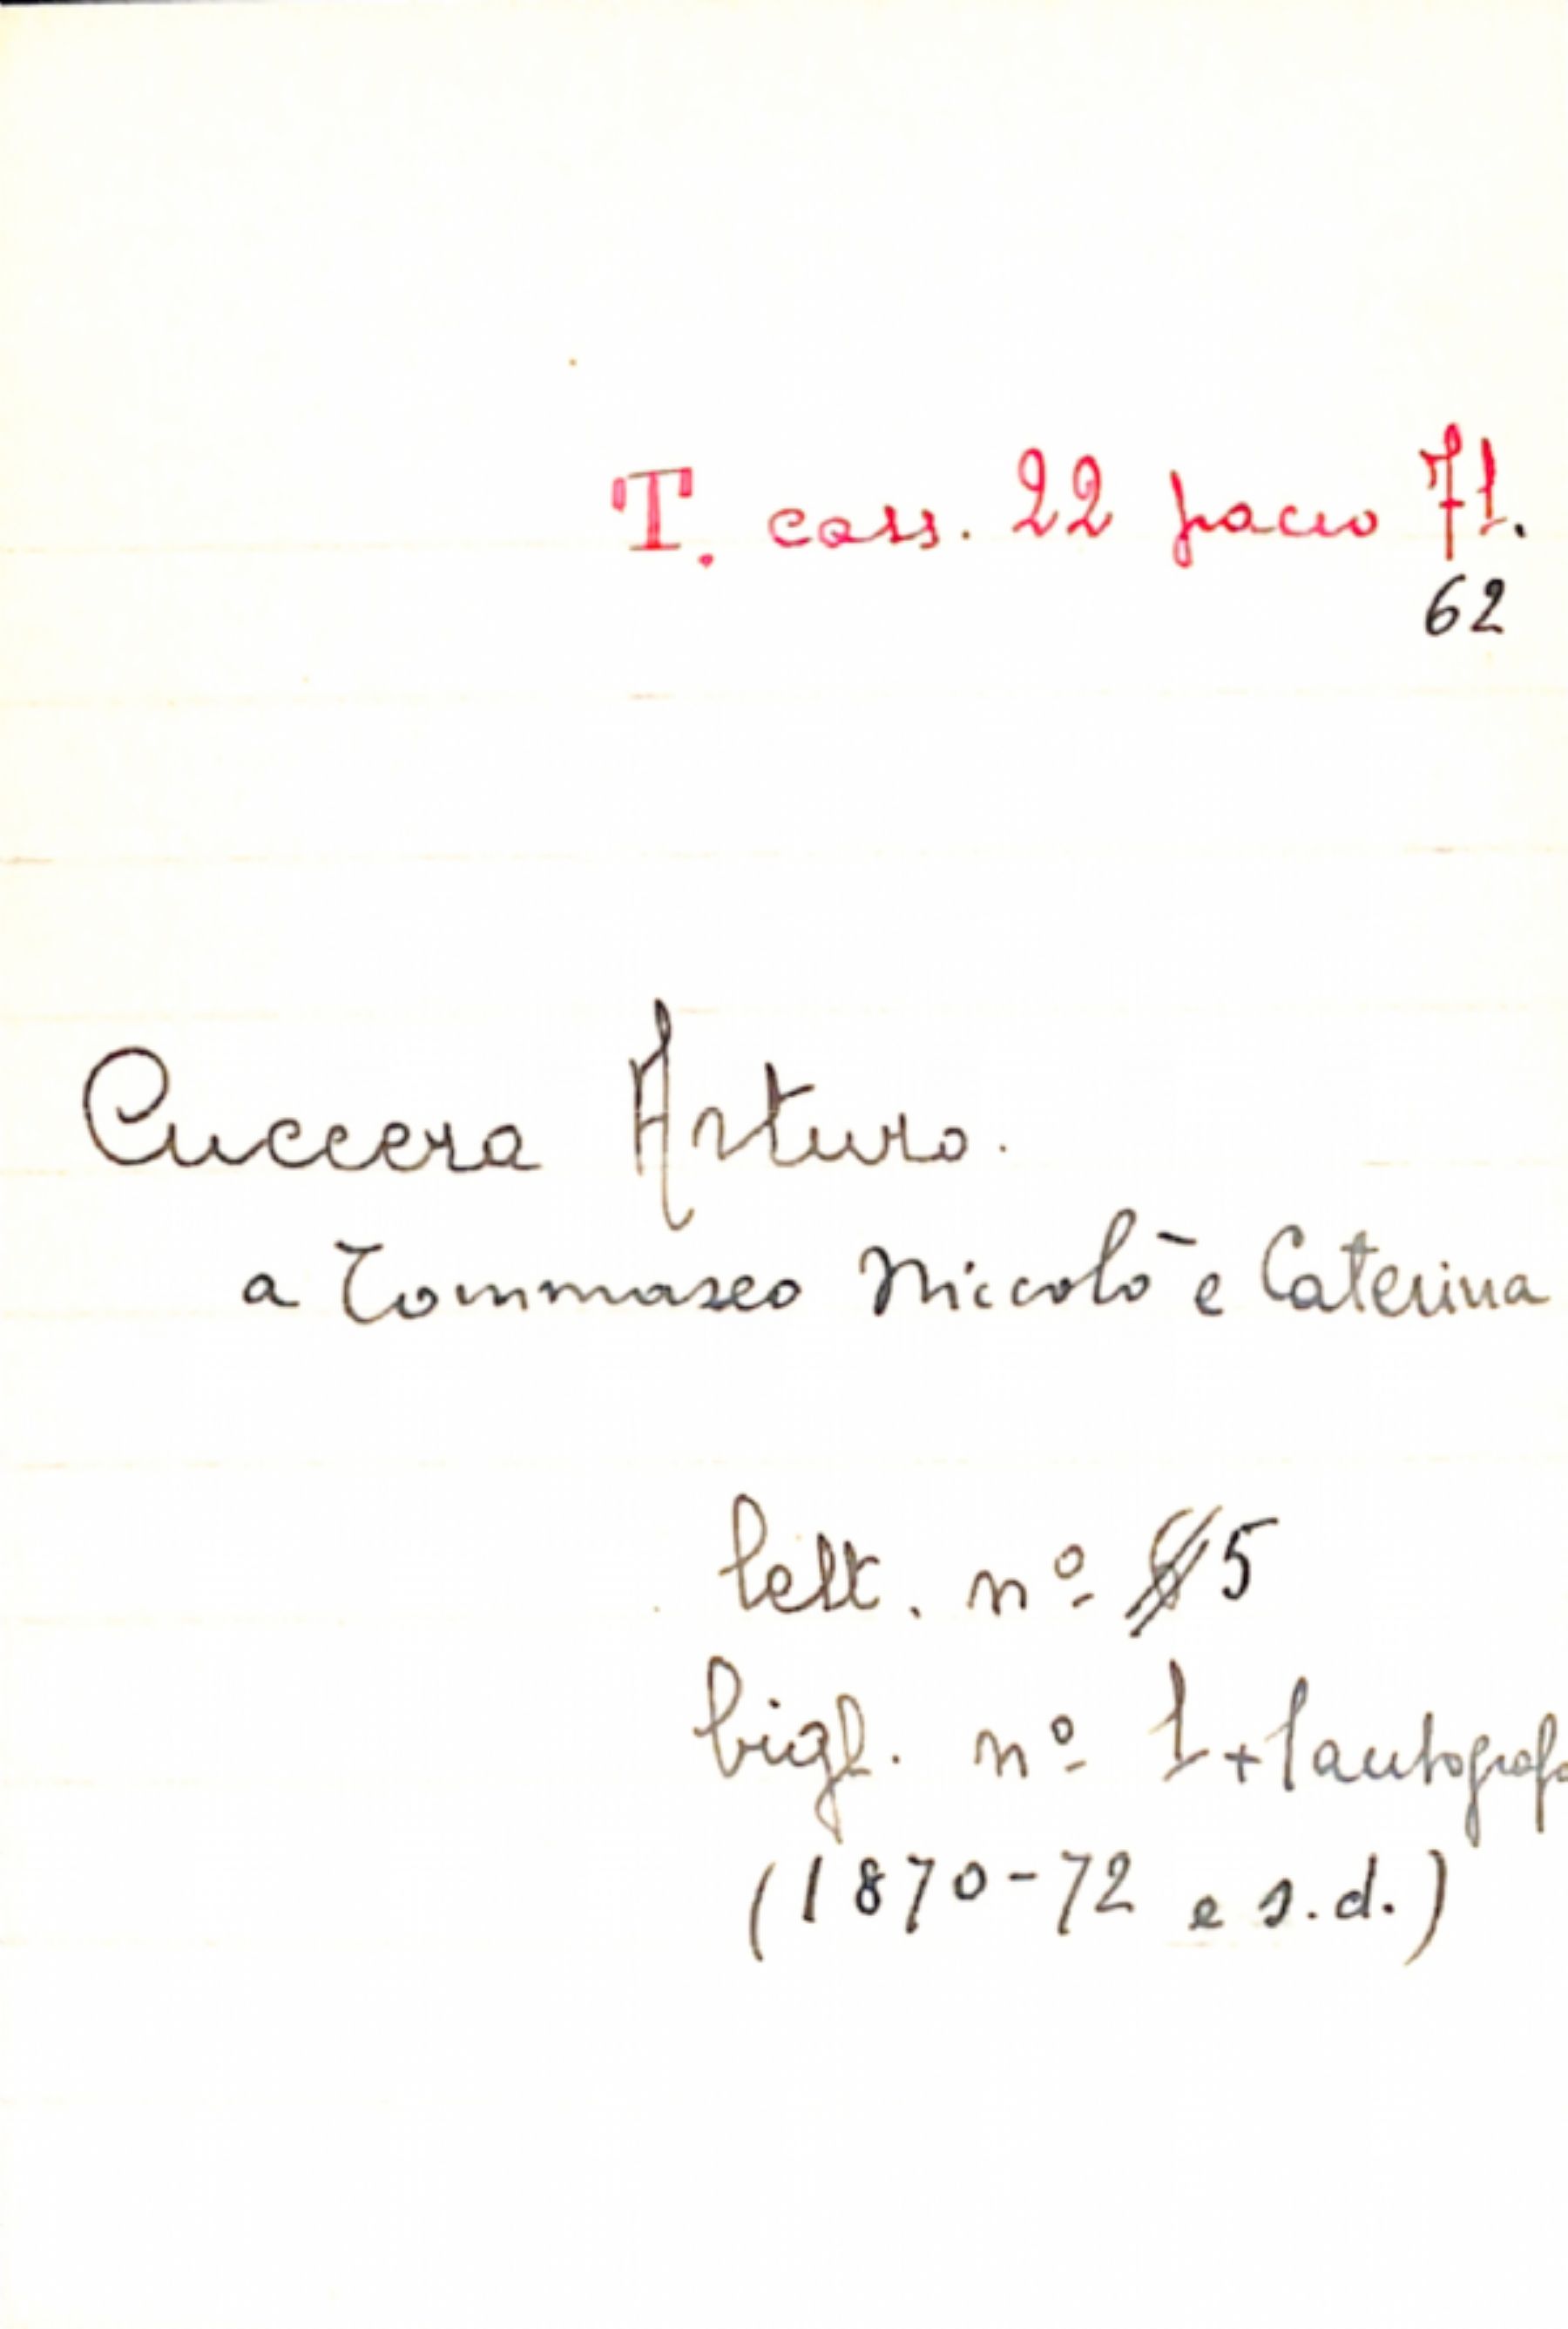 T. cass. 22 pacco 71.
62
Cuccera Arturo.
a Tommaseo Niccolò e Caterina
lett. nº 5
bigl. nº 1 + 1 autografo
(1870-72 e s.d.)